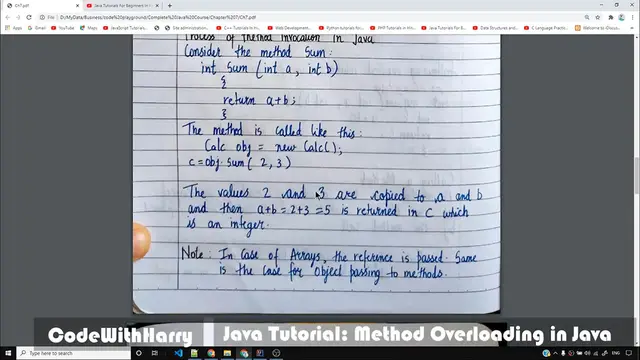 Ch7.pdf
Java Tutorials For Beginners In H
File | D:/MyData/Business/code playground/Complete Java%20Course/Chapter%207/Ch7.pdf
Apps
YouTube
Maps
News
Gmail
JavaScript Tutorials
C++ Tutorials
Web Development
Python tutorials For
PHP Tutorials In H
Java Tutorials For
Welcome to Discuss
Process of method invocation in Java
Consider the method Sum:
int Sum (int a, int b)
{
return a+b;
}
The method is called like this:
Calc obj = new Calc();
c = obj.sum( 2, 3)
The values 2 and 3 are copied to a and b
and then a+b = 2+3 = 5 is returned in c which
is an integer.
Note: In case of Arrays, the reference is passed. Same
is the case for object passing to methods.
CodeWithHarry | Java Tutorial: Method Overloading in Java
Type here to search